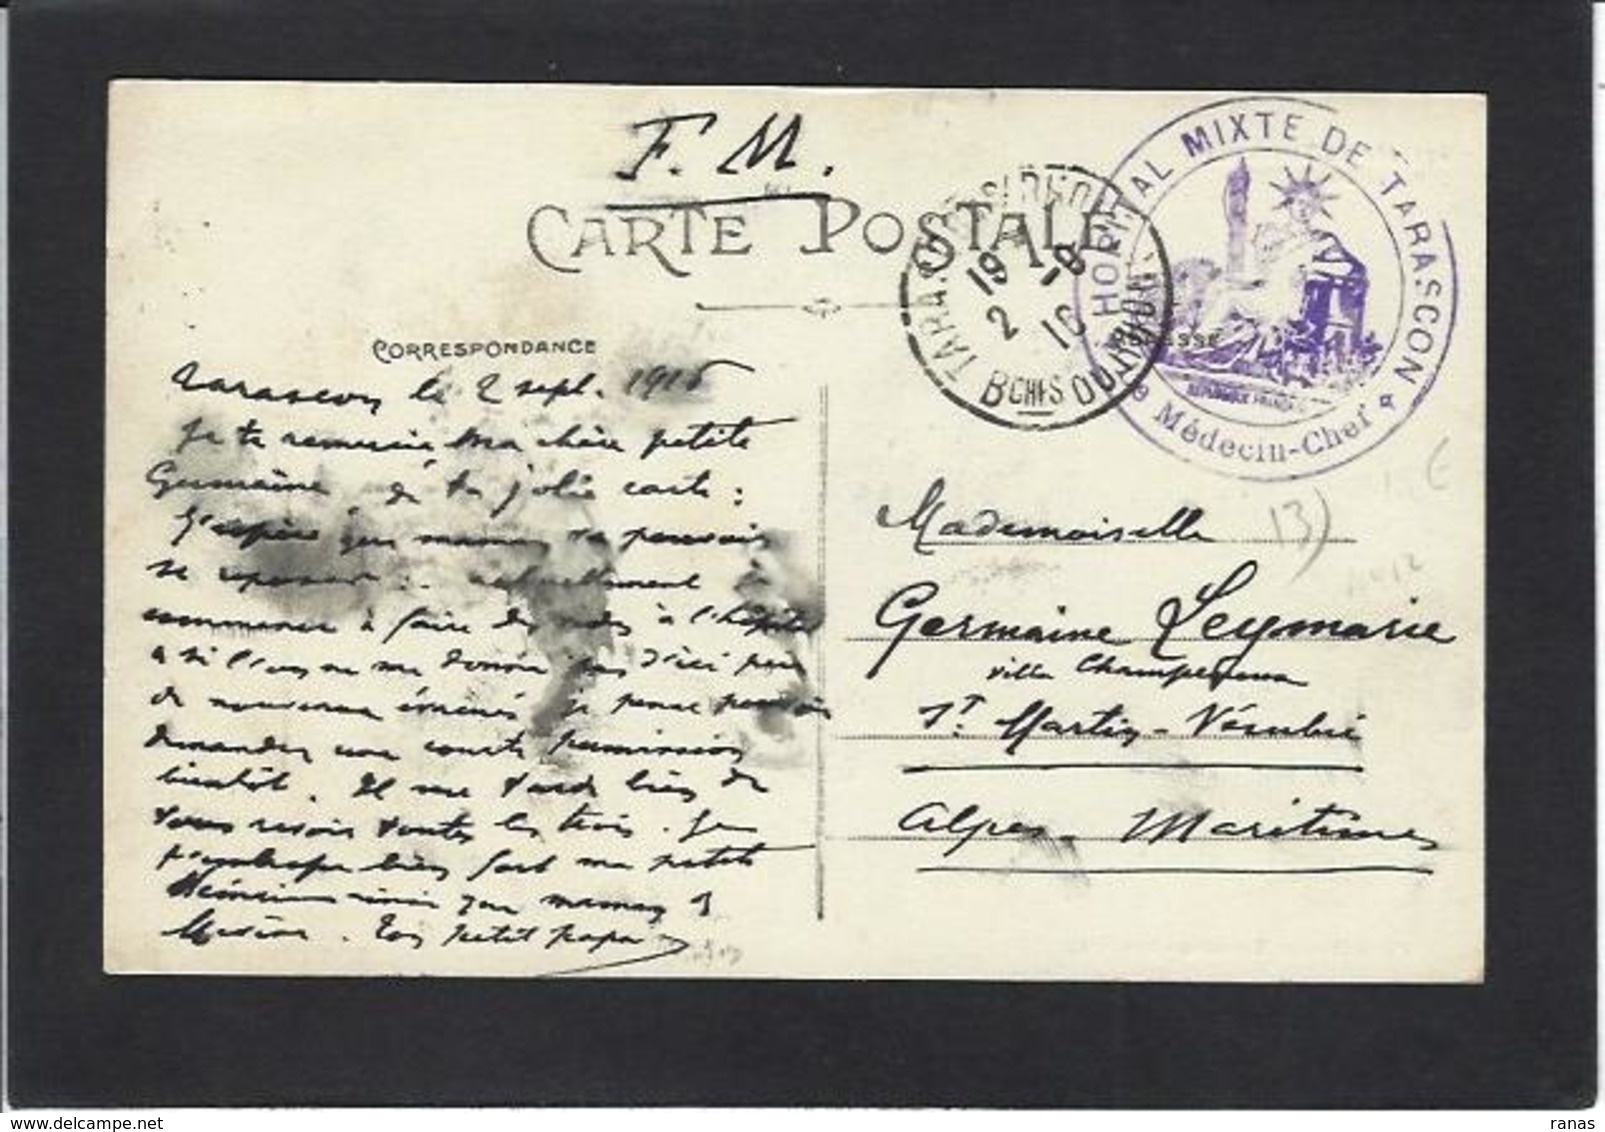 F. M.
CARTE POSTALE
HOPITAL MIXTE DE TARASCON
Médecin-Chef
REPUBLIQUE FRANÇAISE
TARASCON-SUR-RHONE
19 2-9 16
BCHES DU RHONE
CORRESPONDANCE
Tarascon le 2 sept. 1916
Je te remercie ma chère petite
Germaine de ta jolie carte :
J'espère que maman va pouvoir
se reposer : actuellement je
commence à faire des à l'hôpital
& si l'on ne me donne pas d'ici peu
de nouveaux je pense pouvoir
demander une courte permission
bientôt. Il me tarde bien de
vous revoir toutes les trois. Je
t'embrasse bien fort ma petite
ainsi que maman &
Ton petit papa
Mademoiselle
Germaine Leymarie
villa
St. Martin-Vésubie
Alpes-Maritimes
13)
ranas